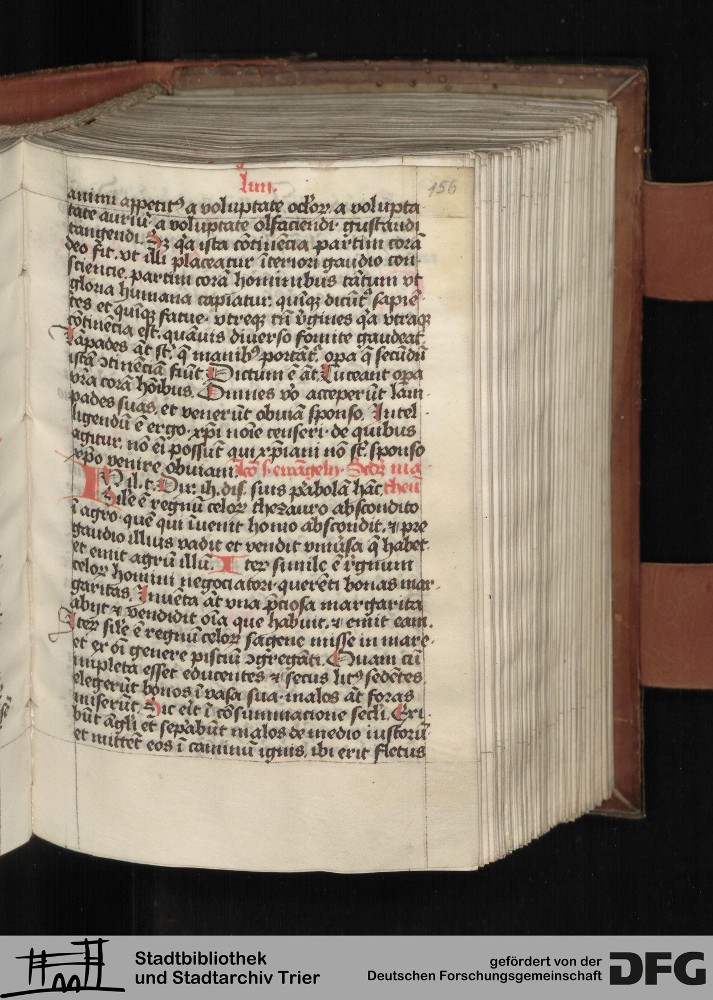 lvii.
156
animi appetitꝯ a voluptate oclõꝝ a volupta
tate auriũ a voluptate olfaciendi gustandi
tangendi. Sꝫ qꝛ ista cõtinẽcia partim corã
deo fit. vt illi placeatur ĩteriori gaudio con
sciencie. partim corã hominibus tãtum vt
gloria humana capiatur. quĩqꝫ dicũtr sapiẽ
tes et quĩqꝫ fatue. vtreqꝫ tñ v̾gines qꝛ vtraqꝫ
cõtinẽcia est. quãuis diuerso fomite gaudeat.
Lãpades aũt st̾. q̃ manibꝰ portãtr. oꝑa q̃ secũdũ
istã ↄtinẽciã fiũt. Dictum ẽ aũt. Luceant oꝑa
vr̃a corã hoĩbus. Omnes vo̾ acceperũt lãm
pades suas. et venerũt obuiã sponso. Intel
ligendũ ẽ ergo. xp̃i noĩe censeri de quibus
agitur. nõ eĩ possũt qui xp̃iani nõ st̾. sponso
xp̃o venire obuiam. lcõ s. ewãgelij. Scdꝫ ma
theũ
In il. t. Dix̾. ih̃. dis̃. suis p̃abolã hãc
Sile ẽ regnũ celoꝝ thezauro abscondito
ĩ agro. quẽ qui ĩuenit homo abscondit. ⁊ pre
gaudio illius vadit et vendit vniu̾sa q̃ habet.
et emit agrũ illũ. Iteꝝ simile ẽ r̃gnum
celoꝝ homini negociatori querẽti bonas mar
garitas. Inuẽta aũt vna p̃ciosa margarita
abijt ⁊ vendidit oĩa que habuit. ⁊ emit eam.
Iteꝝ sil̃e ẽ regnũ celoꝝ sagene misse in mare.
et ex oĩ genere pisciũ ↄgregãti. Quam cũ
impleta esset educentes ⁊ secus litꝰ sedẽtes
elegerũt bonos ĩ vasa sua. malos aũt foras
miserũt. Sic eĩt ĩ cõsummacione sc̃li. Exi
bũt ãgli et sepãbũt malos de medio iustorũ
et mittẽt eos ĩ caminũ ignis. ibi erit fletus
Stadtbibliothek
und Stadtarchiv Trier
gefördert von der
Deutschen Forschungsgemeinschaft
DFG